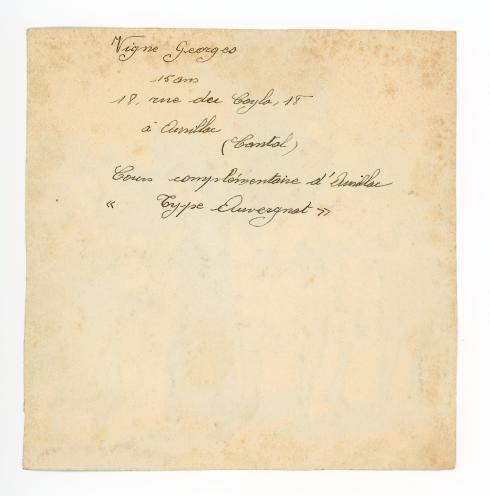 Vigne Georges
15 ans
18, rue du Cayla, 18
à Aurillac
(Cantal)
Cours complémentaire d'Aurillac
« Type Auvergnat »